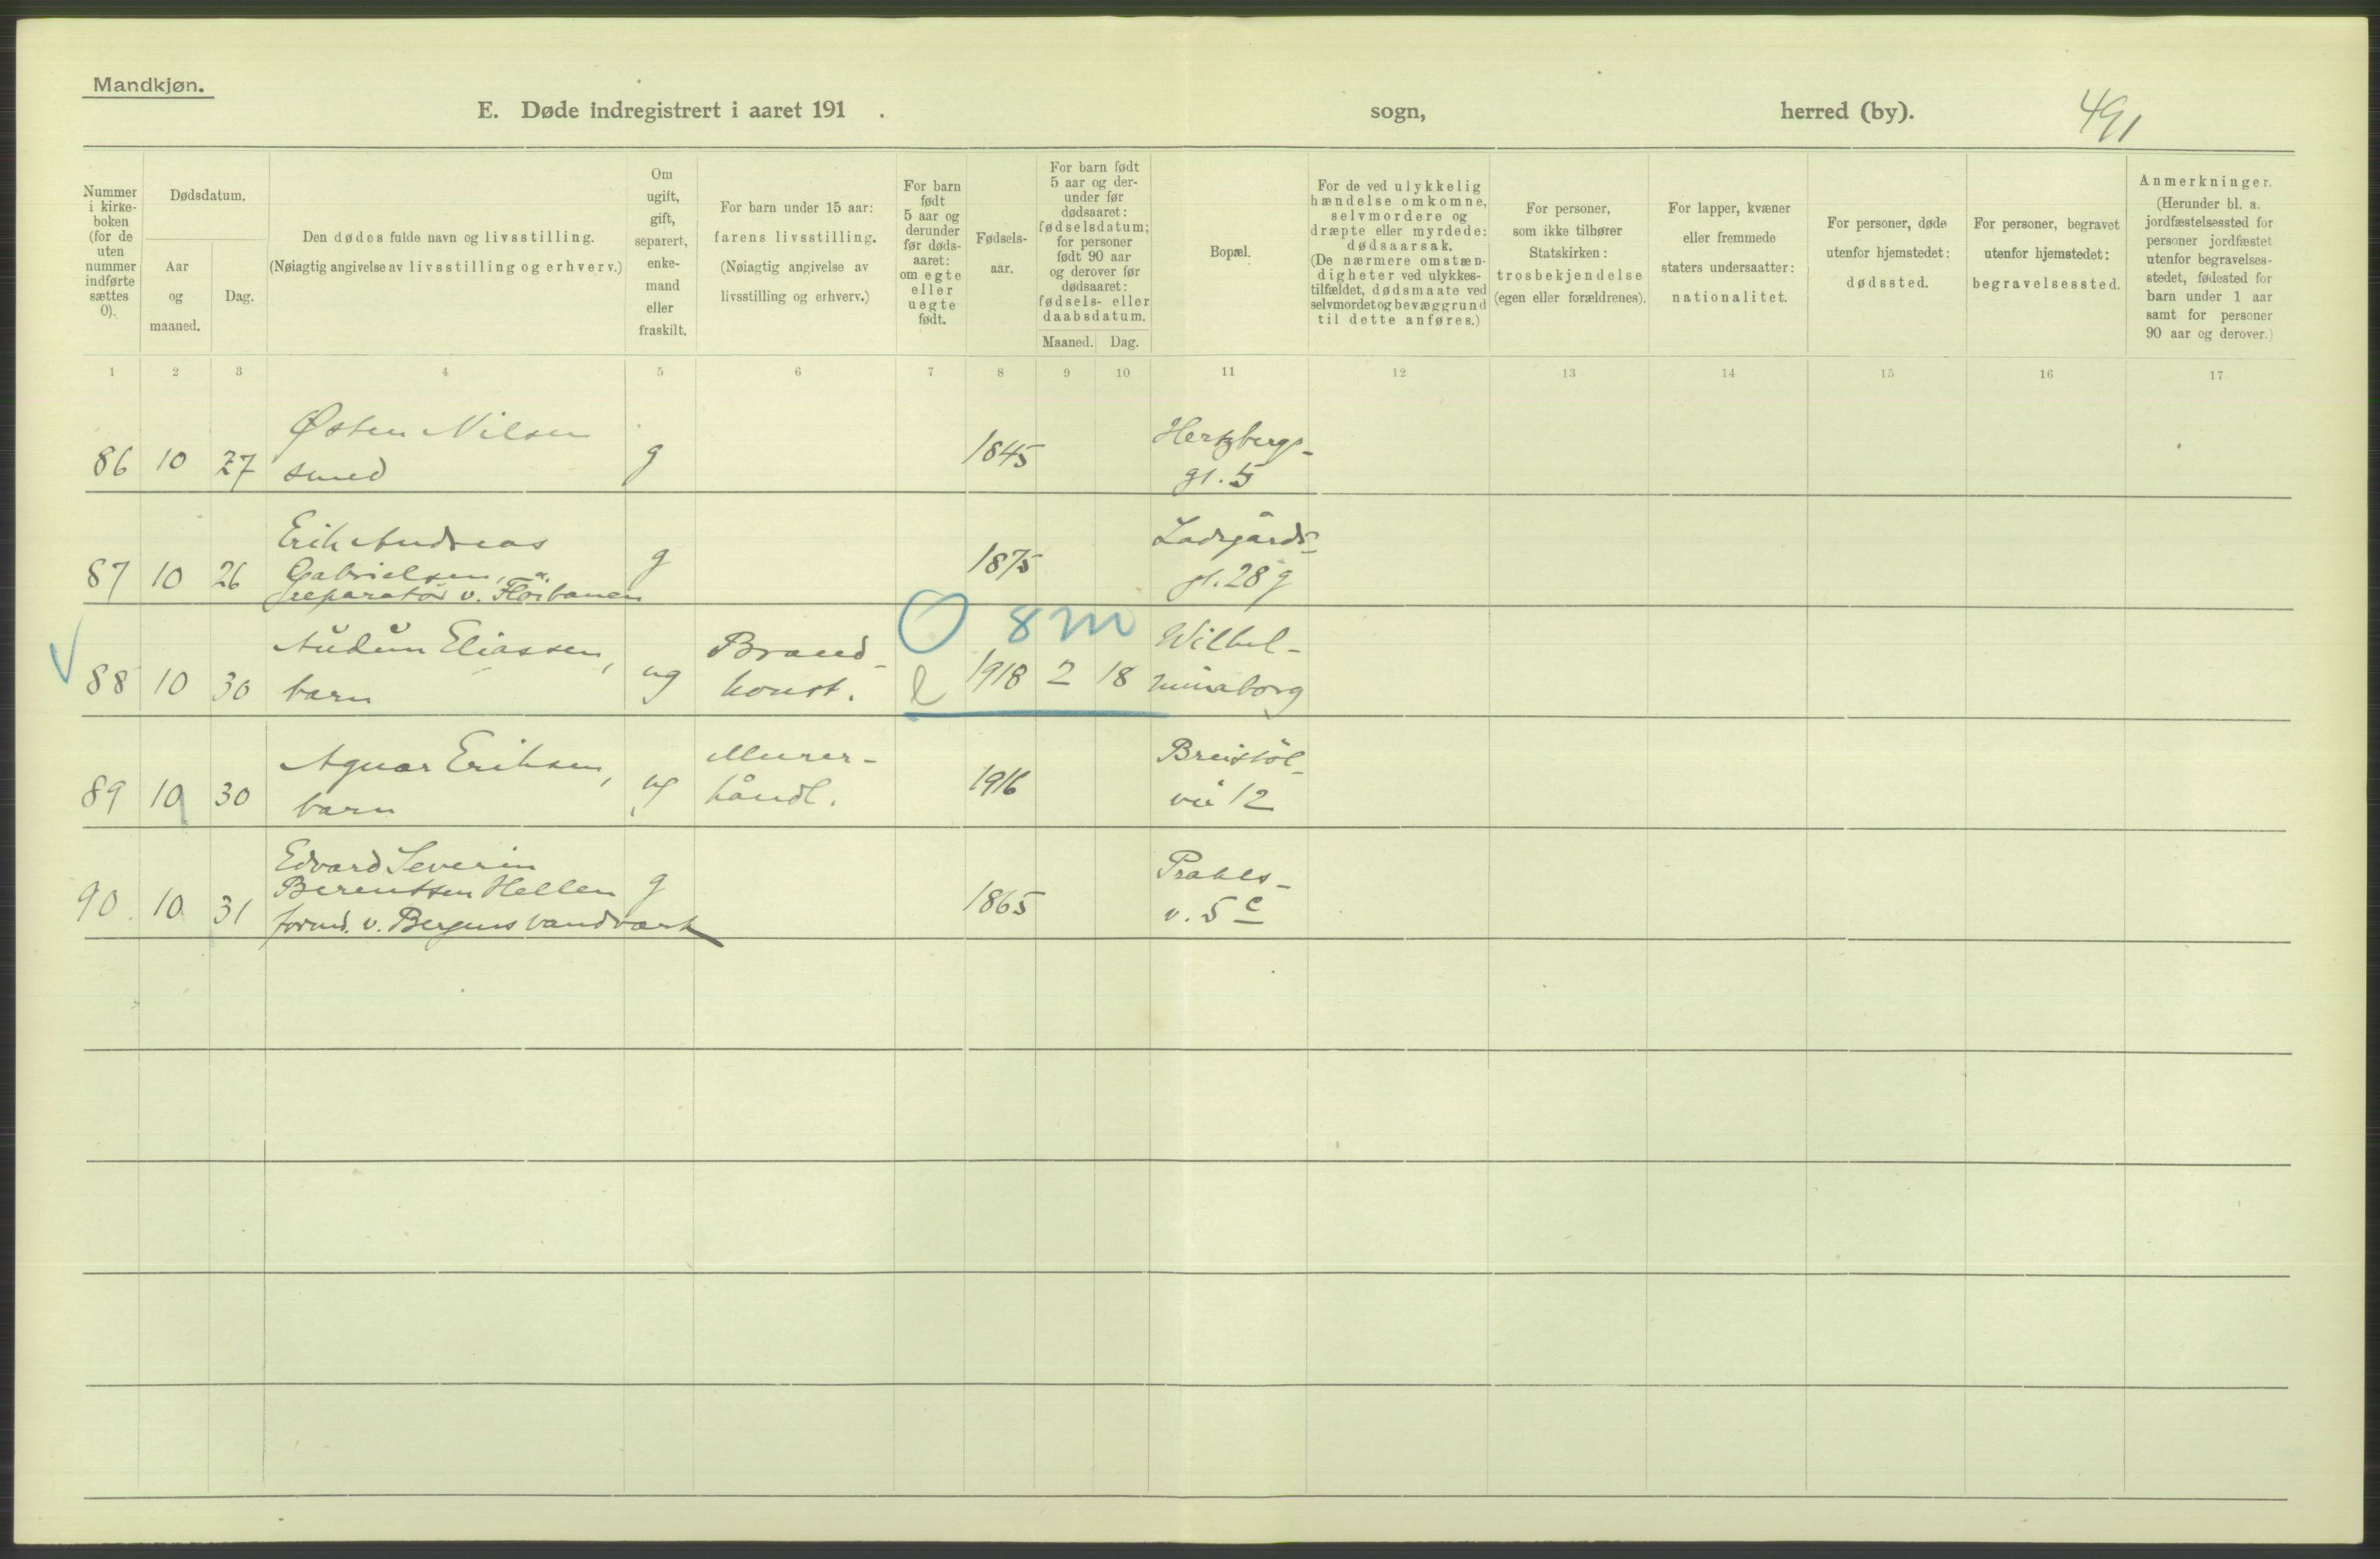 Mandkjøn.
E. Døde indregistrert i aaret 191 . sogn, herred (by). 491
Nummer i kirke-boken (for de uten nummer indførte sættes 0).
Dødsdatum.
Aar og maaned.
Dag.
Den dødes fulde navn og livsstilling.
(Nøiagtig angivelse av livsstilling og erhverv.)
Om ugift, gift, separert, enke-mand eller fraskilt.
For barn under 15 aar:
farens livsstilling.
(Nøiagtig angivelse av
livsstilling og erhverv.)
For barn født 5 aar og derunder før døds-aaret: om egte eller uegte født.
Fødsels-aar.
For barn født 5 aar og der-under før dødsaaret: fødselsdatum; for personer født 90 aar og derover før dødsaaret: fødsels- eller daabsdatum.
Maaned. Dag.
Bopæl.
For de ved ulykkelig
hændelse omkomne,
selvmordere og
dræpte eller myrdede:
dødsaarsak.
(De nærmere omstæn-
digheter ved ulykkes-
tilfældet, dødsmaate ved
selvmordet og bevæggrund
til dette anføres.)
For personer,
som ikke tilhører
Statskirken:
trosbekjendelse
(egen eller forældrenes).
For lapper, kvæner
eller fremmede
staters undersaatter:
nationalitet.
For personer, døde
utenfor hjemstedet:
dødssted.
For personer, begravet
utenfor hjemstedet:
begravelsessted.
Anmerkninger.
(Herunder bl. a.
jordfæstelsessted for
personer jordfæstet
utenfor begravelses-
stedet, fødested for
barn under 1 aar
samt for personer
90 aar og derover.)
1 2 3 4 5 6 7 8 9 10 11 12 13 14 15 16 17
Østen Nilsen Hertzbergs-
86 10 27 smed g 1845 gt. 5
Erik Andreas Ladegårds-
87 10 26 Gabrielsen, g 1875 gt. 28 g
reparatør v. Fløibanen
O 8 m
Audun Eliassen, Brand- Wilhel-
88 10 30 barn ug konst. e 1918 2 18 minaborg
Agnar Eriksen, Murer- Breistöl-
89 10 30 barn ug håndl. 1916 vei 12
Edvard Severin
Berentsen Hellen g Prahls-
90 10 31 formd. v. Bergens vandværk 1865 v. 5 c